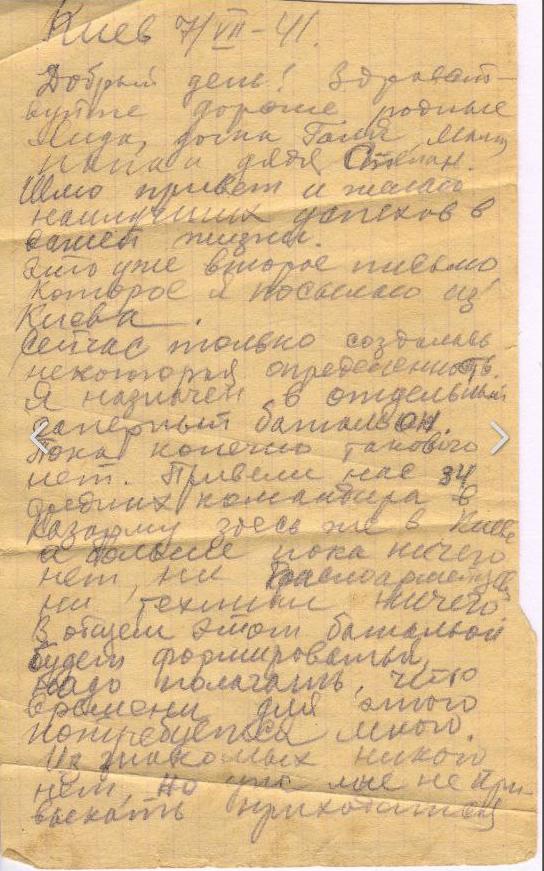 Киев 7/VII-41.
Добрый день! Здравст-
вуйте дорогие родные
Лида, дочка Галя, мама,
папа и дядя Степан.
Шлю привет и желаю
наилучших успехов в
вашей жизни.
Это уже второе письмо
которое я посылаю из
Киева.
Сейчас только создалась
некоторая определенность.
Я назначен в отдельный
саперный батальон.
Пока конечно такового
нет. Привели нас 34
средних командира в
казарму здесь же в Киеве
и больше пока ничего
нет, ни красноармейцев
ни техники ничего.
В общем этот батальон
будет формироваться,
надо полагать, что
времени для этого
потребуется много.
Из знакомых никого
нет, но уже мне не при-
выкать приходится